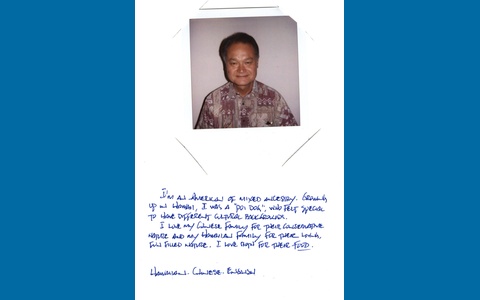 I'M AN AMERICAN OF MIXED ANCESTRY. GROWING
UP IN HAWAII, I WAS A "POI DOG", WHO FELT SPECIAL
TO HAVE DIFFERENT CULTURAL BACKGROUNDS.
I LOVE MY CHINESE FAMILY FOR THEIR CONSERVATIVE
NATURE AND MY HAWAIIAN FAMILY FOR THEIR LOVING,
FUN FILLED NATURE. I LOVE BOTH FOR THEIR FOOD.
HAWAIIAN. CHINESE. ENGLISH